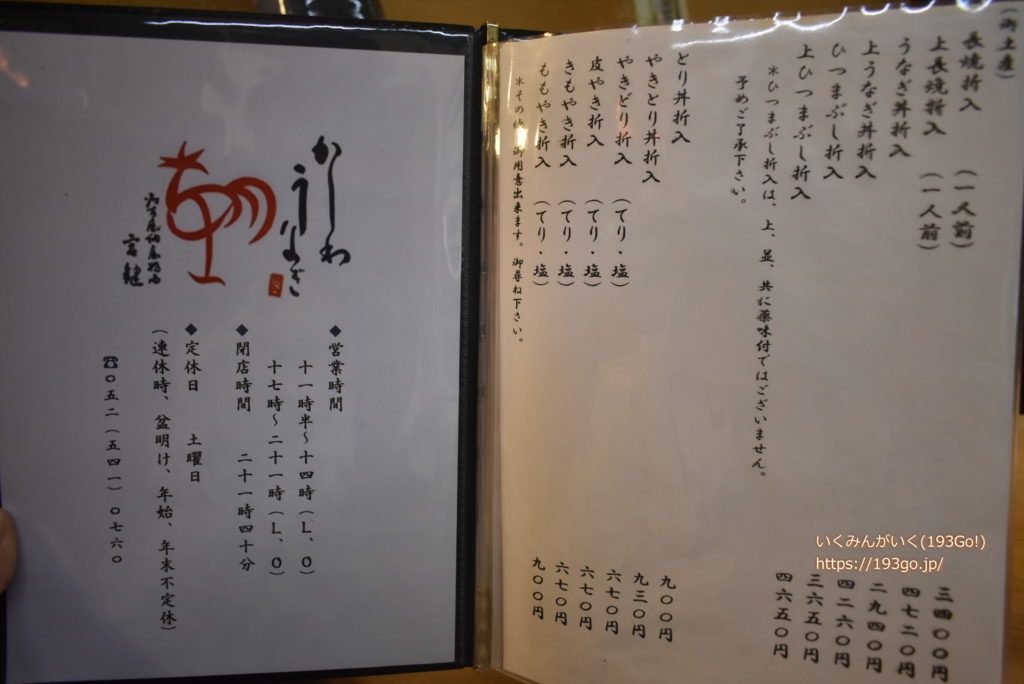 (御土産)
長焼折入 (一人前) 三四〇〇円
上長焼折入 (一人前) 四七二〇円
うなぎ丼折入 二九四〇円
上うなぎ丼折入 四二六〇円
ひつまぶし折入 三六五〇円
上ひつまぶし折入 四六五〇円
*ひつまぶし折入は、上、並、共に薬味付ではございません。
予めご了承下さい。
とり丼折入 九〇〇円
やきとり丼折入 九三〇円
やきどり折入 (てり・塩) 六七〇円
皮やき折入 (てり・塩) 六七〇円
きもやき折入 (てり・塩) 六七〇円
ももやき折入 (てり・塩) 九〇〇円
*その他、御用意出来ます。御尋ね下さい。
かしわ
うなぎ
宮鍵
◆営業時間
十一時半〜十四時(L、O)
十七時〜二十一時(L、O)
◆閉店時間 二十一時四十分
◆定休日 土曜日
(連休時、盆明け、年始、年末不定休)
☎〇五二(五四一)〇七六〇
いくみんがいく(193Go!)
https://193go.jp/